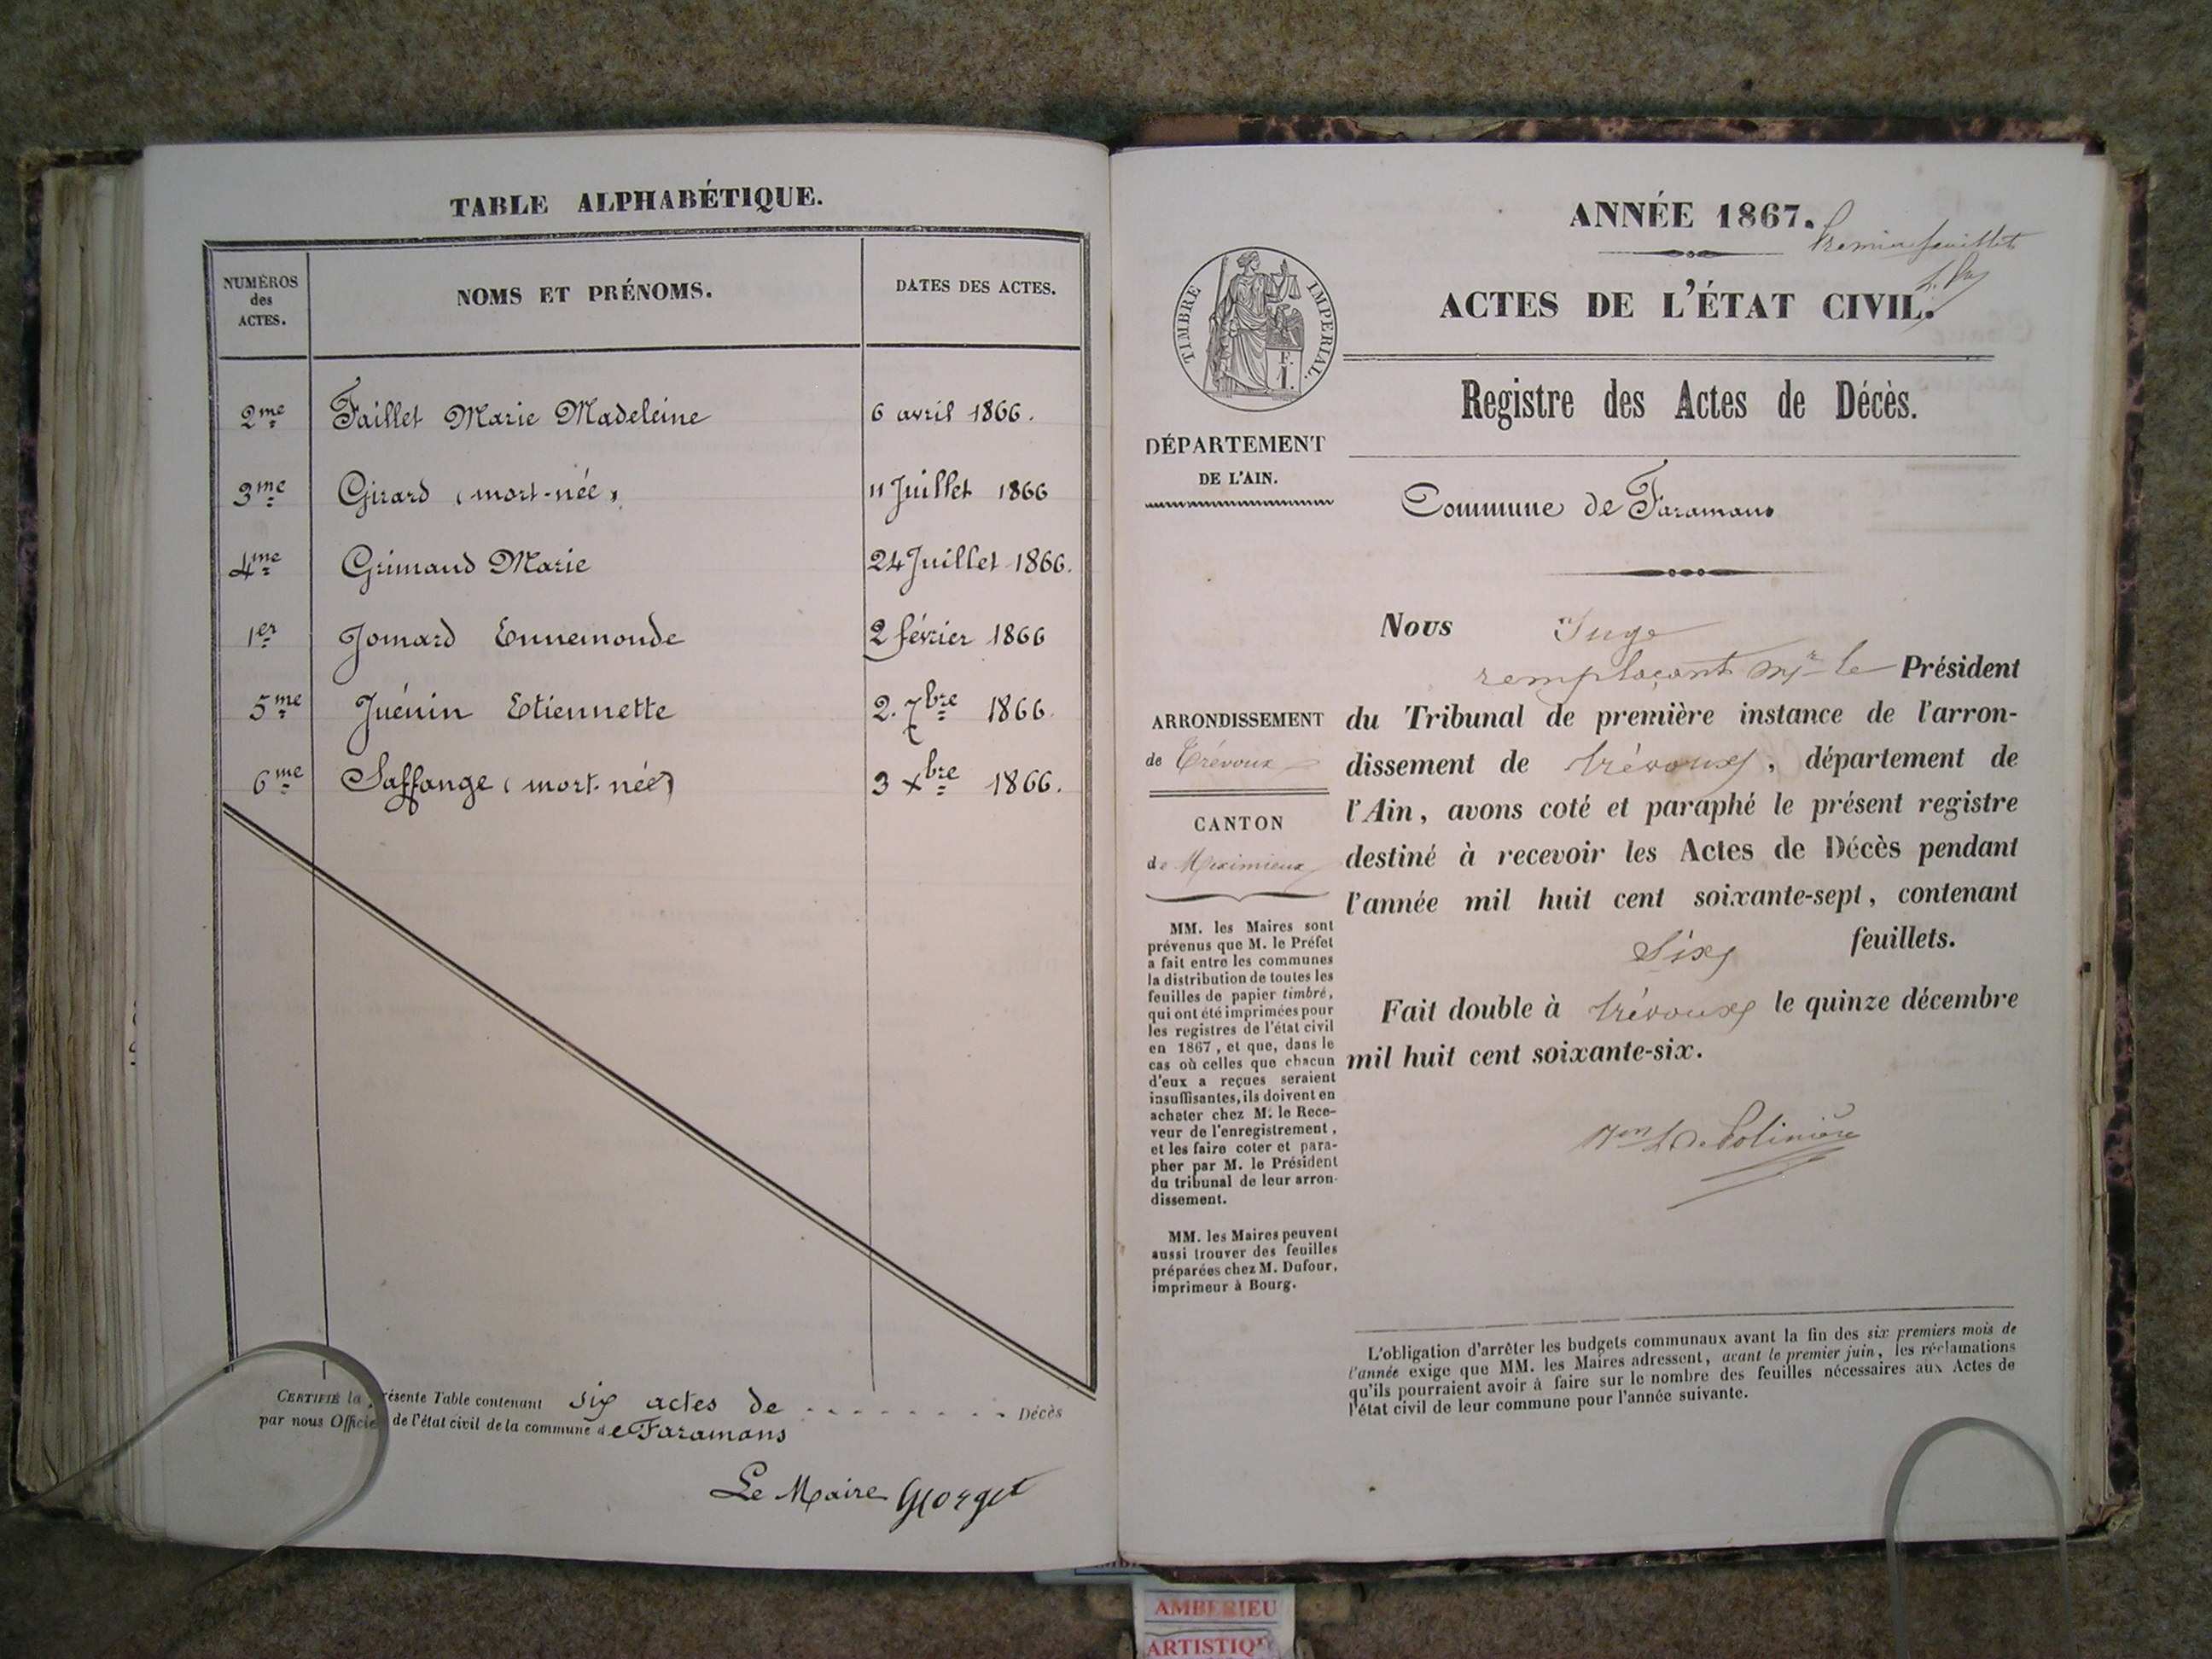 TABLE ALPHABÉTIQUE.
NUMÉROS
des
ACTES.
NOMS ET PRÉNOMS.
DATES DES ACTES.
2me Faillet Marie Madeleine 6 avril 1866.
3me Girard (mort-née) 11 Juillet 1866
4me Grimaud Marie 24 Juillet 1866.
1er Jomard Ennemonde 2 février 1866
5me Juénin Etiennette 2. 7bre 1866.
6me Saffange (mort-née) 3 Xbre 1866.
CERTIFIÉ la présente Table contenant six actes de - - - - - - - - Décès
par nous Officier de l'état civil de la commune de Faramans
Le Maire Gorget
ANNÉE 1867.
Premier feuillet
ACTES DE L'ÉTAT CIVIL.
TIMBRE IMPERIAL.
F.
1.
Registre des Actes de Décès.
DÉPARTEMENT
DE L'AIN.
Commune de Faramans
Nous Juge
remplaçant Mr le Président
du Tribunal de première instance de l'arron-
dissement de Trévoux, département de
l'Ain, avons coté et paraphé le présent registre
destiné à recevoir les Actes de Décès pendant
l'année mil huit cent soixante-sept, contenant
Six feuillets.
Fait double à Trévoux le quinze décembre
mil huit cent soixante-six.
de Polinière
ARRONDISSEMENT
de Trévoux
CANTON
de Meximieux
MM. les Maires sont
prévenus que M. le Préfet
a fait entre les communes
la distribution de toutes les
feuilles de papier timbré,
qui ont été imprimées pour
les registres de l'état civil
en 1867, et que, dans le
cas où celles que chacun
d'eux a reçues seraient
insuffisantes, ils doivent en
acheter chez M. le Rece-
veur de l'enregistrement,
et les faire coter et para-
pher par M. le Président
du tribunal de leur arron-
dissement.
MM. les Maires peuvent
aussi trouver des feuilles
préparées chez M. Dufour,
imprimeur à Bourg.
L'obligation d'arrêter les budgets communaux avant la fin des six premiers mois de
l'année exige que MM. les Maires adressent, avant le premier juin, les réclamations
qu'ils pourraient avoir à faire sur le nombre des feuilles nécessaires aux Actes de
l'état civil de leur commune pour l'année suivante.
AMBERIEU
ARTISTIQ